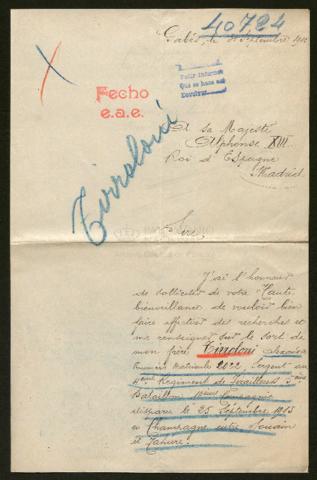 40724
Gabès, le Septembre 19
Fecho
e.a.e.
Pedir informes
Que se haga así
A sa Majesté
Alphonse XIII
Roi d'Espagne
Madrid
Tirroloni
Sire,
J'ai l'honneur
de solliciter de votre Haute
bienveillance de vouloir bien
faire effectuer des recherches et
me renseigner sur le sort de
mon frère Tiroloni
numéro matricule 2622 Sergent au
4ème Régiment de Tirailleurs 5ème
Bataillon Compagnie
disparu le 25 Septembre 1915
en Champagne entre Souain
et Tahure.